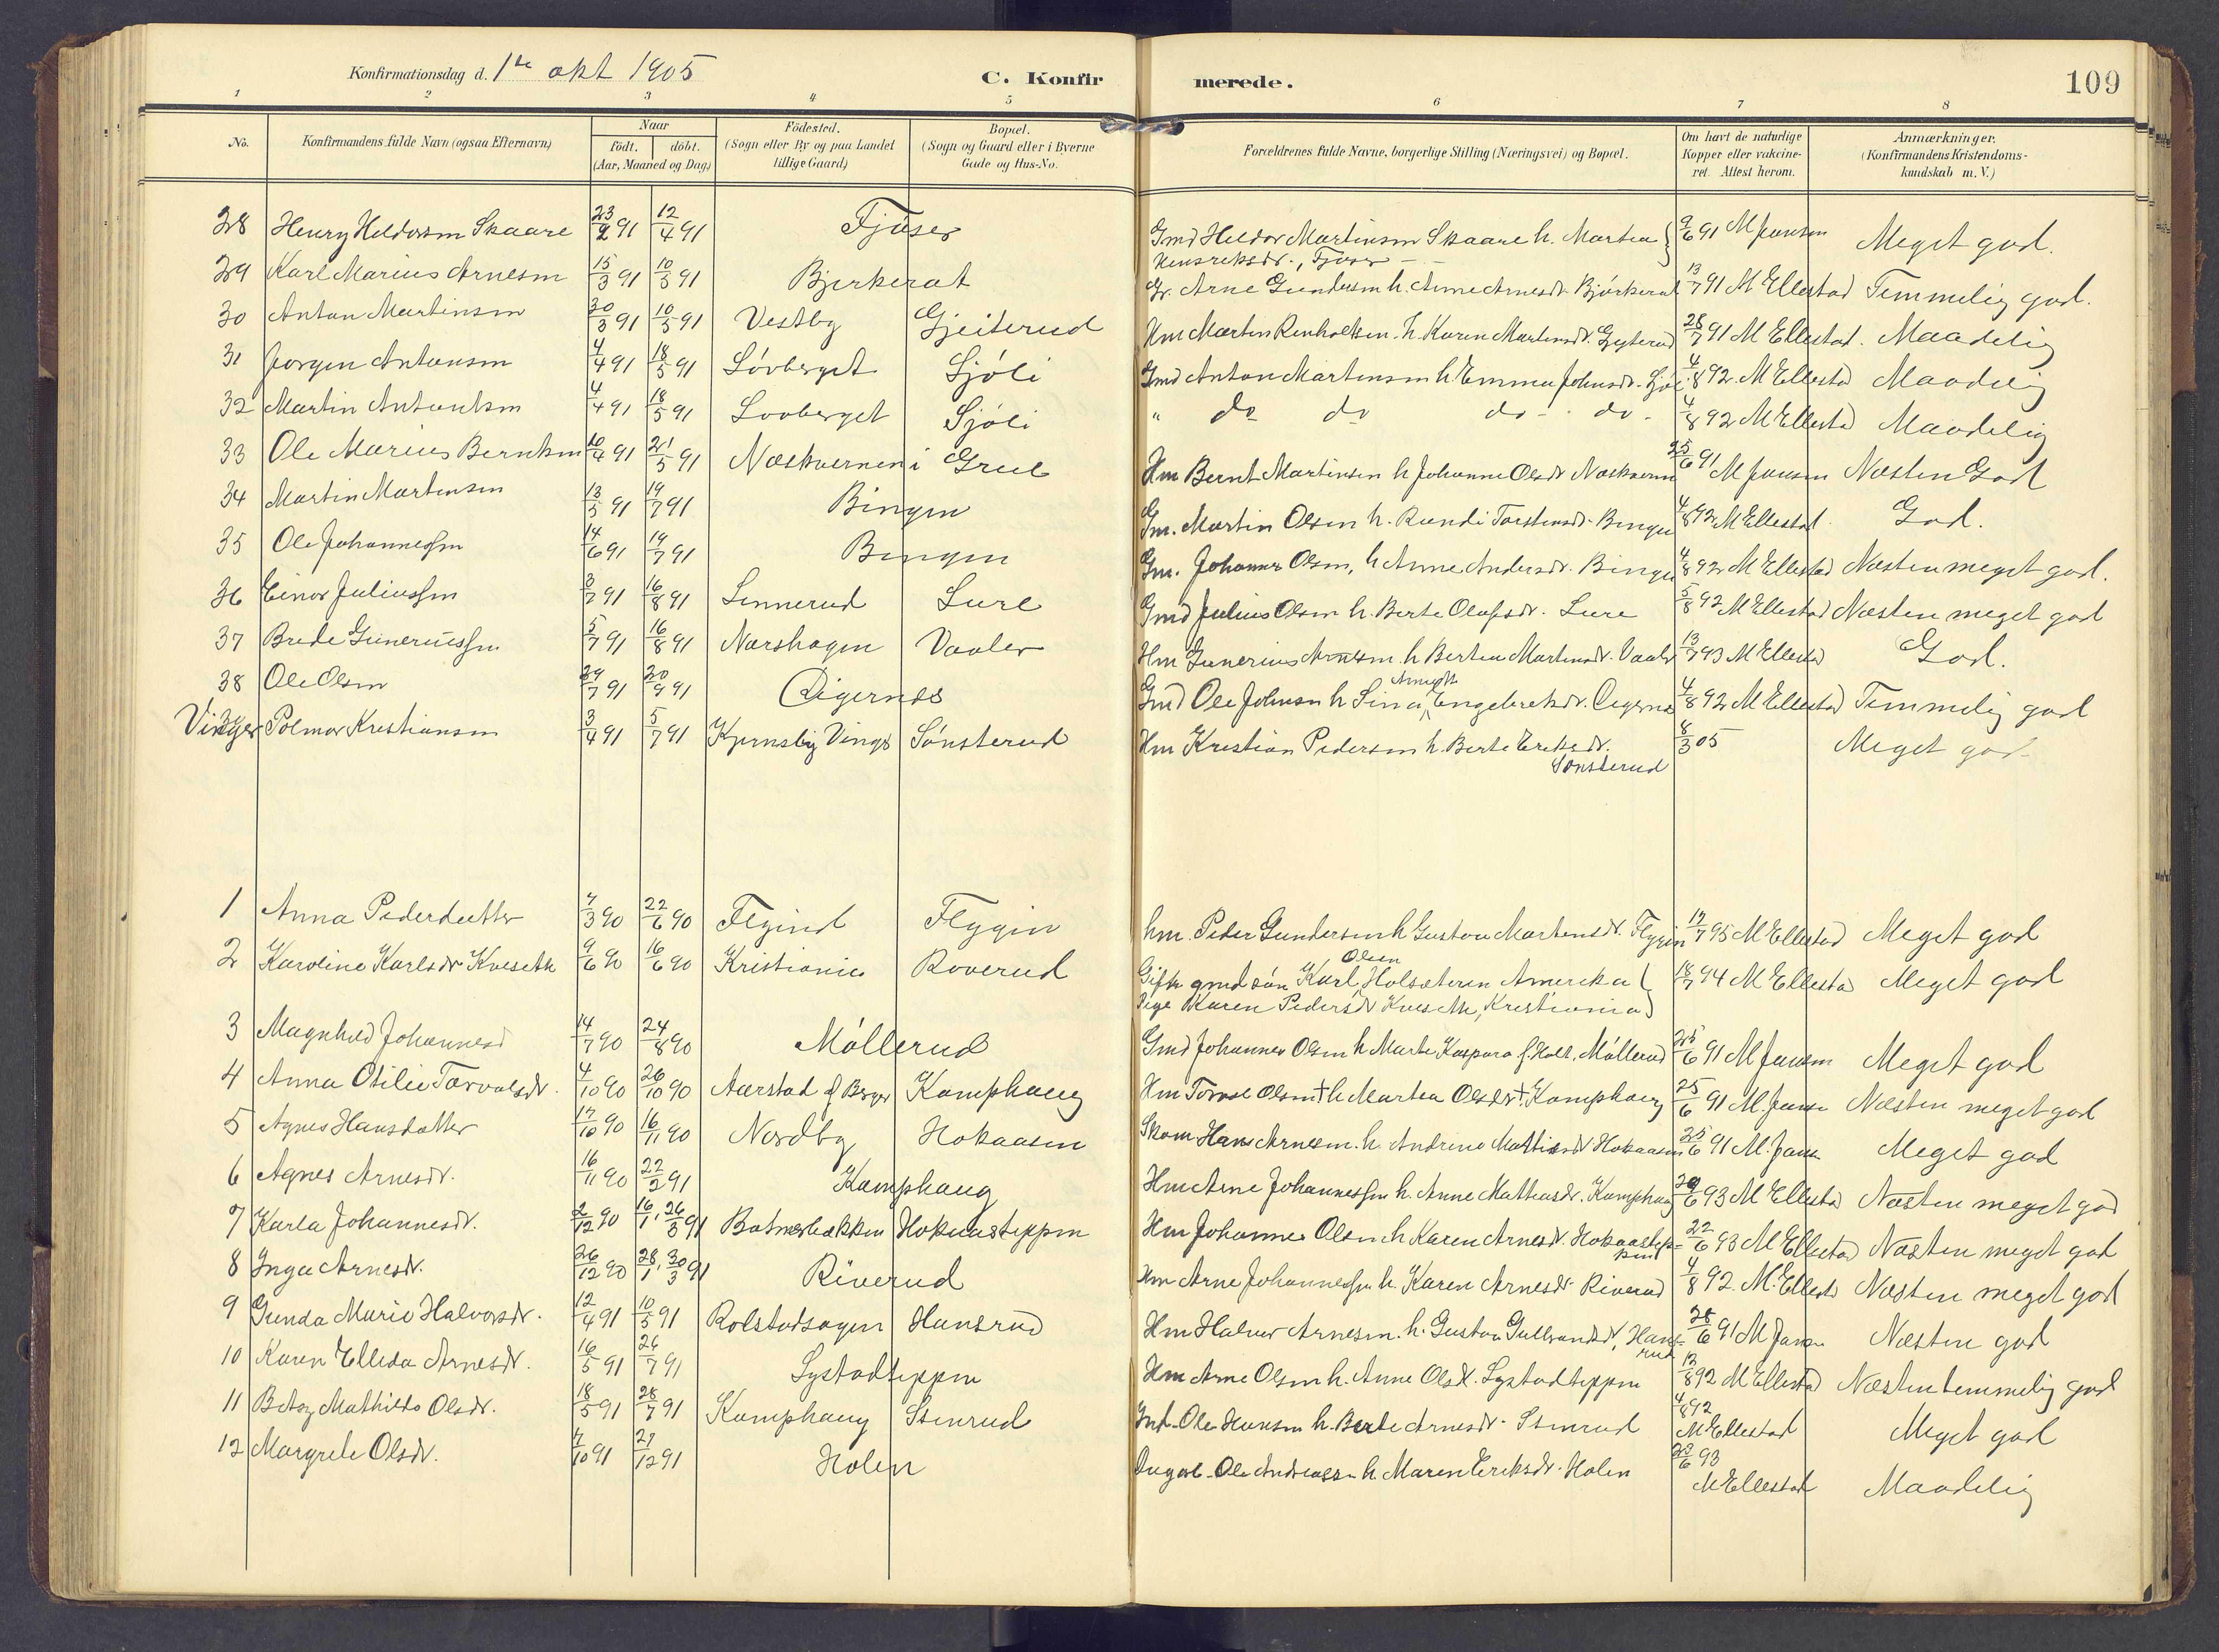 Konfirmationsdag d. 1ste okt 1905 C. Konfir merede. 109
1 2 3 4 5 6 7 8
No. Konfirmandens fulde Navn (ogsaa Efternavn) Naar födt. döbt. (Aar, Maaned og Dag) Födested. (Sogn eller By og paa Landet tillige Gaard) Bopæl. (Sogn og Gaard eller i Byerne Gade og Hus-No. Forældrenes fulde Navne, borgerlige Stilling (Næringsvei) og Bopæl. Om havt de naturlige Kopper eller vakcineret. Attest herom. Anmærkninger. (Konfirmandens Kristendomskundskab m. V.)
28 Henry Heldorsen Skaare 23/2 91 12/4 91 Fjöser Gmd Heldor Martinsen Skaare h. Martea 9/6 91 M Jansen Meget god.
Hensreksdr., Fjöser
29 Karl Marius Arnesen 15/3 91 10/3 91 Bjerkerat Gr. Arne Gundersen h. Anne Arnesdr. Björkerat 13/7 91 M Ellestad Temmelig god.
30 Anton Martinsen 30/3 91 10/5 91 Vestby Gjeiterud Hm Martin Renholtsen h. Karen Martinsdr. Gyterud 28/7 91 M Ellestad. Maadelig
31 Jørgen Antonsen 4/4 91 18/5 91 Lövberget Sjöli Gmd Anton Martinsen h. Emma Johnsdr. Sjöli 4/8 92 M Ellestad Maadelig
32 Martin Antonsen 4/4 91 18/5 91 Lovberget Sjöli " do do do do 4/8 92 M Ellestad Maadelig
33 Ole Marius Berntsen 10/4 91 21/5 91 Næskvernen i Grue Hm Bernt Martinsen h Johanne Olsdr Næskvern 25/6 91 M Jansen Næsten God
34 Martin Martinsen 13/5 91 19/7 91 Bingen Gm. Martin Olsen h. Randi Torstensdr. Bingen 4/8 92 M Ellestad God.
35 Ole Johannessen 14/6 91 19/7 91 Bingen Gm. Johannes Olsen, h Anne Andersdr. Bingen 4/8 92 M Ellestad Næsten meget god.
36 Einar Juliussen 3/7 91 16/8 91 Linnerud Lure Gmd Julius Olsen h. Berte Olafsdr. Lure 5/8 92 M Ellestad Næsten meget god
37 Brede Guneriussen 5/7 91 16/8 91 Norshagen Vaaler Hm Gunerius Arnesen h Bertea Martinsdr. Vaaler 13/7 93 M Ellestad God.
38 Ole Olsen 29/7 91 20/9 91 Oigernes Gmd Ole Johnsen h Lina Engebretsdr. Oigernes 4/8 92 M Ellestad Temmelig god
Vinger Polmar Kristiansen 3/4 91 5/7 91 Kjernsby Vinger Sönsterud Hm Kristian Pedersen h. Berte Ereksdr. 8/3 05 Meget god
Sönsterud
1 Anna Pederdatter 7/3 90 22/6 90 Flygind Flygin hm. Peder Gundersen h Gustava Martensdr. Flygin 17/7 95 M Ellestad Meget god
2 Karoline Karlsdr Kveseth 9/6 90 16/6 90 Kristiania Roverud Gift gmd søn Karl Olsen Holsæteren Amereka 18/7 94 M Ellestad Meget god
Pige Karen Pedersdr Kveseth, Kristiania
3 Magnhild Johannesd 14/7 90 24/8 90 Möllerud Gmd Johannes Olsen h Marte Kaspara f. Holt. Möllerud 25/6 91 M Jansen Meget god
4 Anna Otilie Torvalsdr. 4/10 90 26/10 90 Aarstad f Berger Kamphaug Hm Torval Olsen † h Martea Olsdr †. Kamphaug 25/6 91 M. Jansen Næsten meget god
5 Agnes Hansdatter 17/10 90 16/11 90 Nordby Hokaasen Skom Hans Arnesen h. Andrine Mathisdr Hokaasen 25/6 91 M. Jansen Meget god
6 Agnes Arnesdr. 16/11 90 22/2 91 Kamphaug Hm Arne Johannessen h. Anne Mathiasdr. Kamphaug 29/6 93 M Ellestad Næsten meget god
7 Karla Johannesdr. 2/12 90 16/1, 26/3 91 Batnesbakken Hokaasteppen Hm Johannes Olsen h Karen Arnesdr. Hokaastep-pen 22/6 93 M Ellestad Næsten meget god
8 Inga Arnesdr. 26/12 90 28/1, 30/3 91 Riverud Hm Arne Johannessen h. Karen Arnesdr. Riverud 4/8 92 M. Ellestad Næsten meget god
9 Gunda Marie Halvorsdr. 12/4 91 10/5 91 Rolstadsagen Hansrud Hm Halvor Arnesen h. Gustava Gulbrandsdr, Hans-rud 28/6 91 M Jansen Næsten god
10 Karen Ellida Arnesdr. 16/5 91 26/7 91 Lystadteppen Hm Arne Olsen h. Anne Olsd. Lystadteppen 13/8 92 M Ellestad Næsten temmelig god
11 Betzy Mathilde Olsdr. 18/5 91 28/7 91 Kamphaug Stenrud Ind. Ole Hansen h. Berte Arnesdr. Stenrud 4/8 92 M Ellestad Meget god
12 Margrete Olsdr. 7/10 91 27/12 91 Holen Ole Andreassen h Maren Eriksdr. Holen 22/6 93 M Ellestad Maadelig